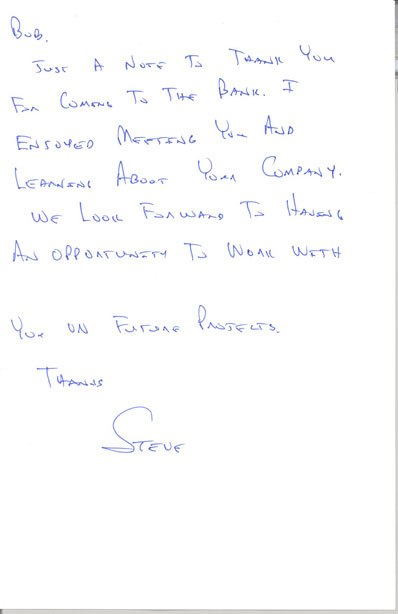 Bob,
Just a note to thank you
for coming to the bank. I
enjoyed meeting you and
learning about your company.
We look forward to having
an opportunity to work with
you on future projects.
Thanks
Steve